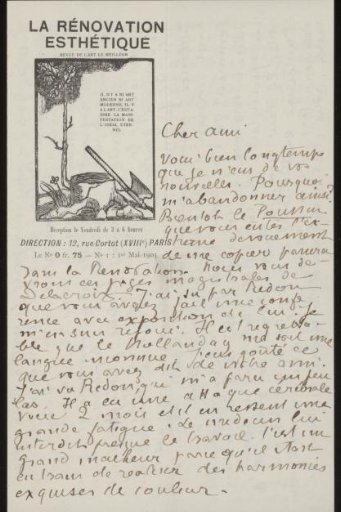 LA RÉNOVATION
ESTHÉTIQUE
REVUE DE L'ART LE MEILLEUR
IL N'Y A NI ART
ANCIEN NI ART
MODERNE, IL Y
A L'ART, C'EST A
DIRE LA MANI
FESTATION DE
L'IDÉAL ETER
NEL
Réception le Vendredi de 3 à 6 heures
DIRECTION : 12, rue Cortot (XVIIIe) PARIS
Le No 0 fr. 75 — No 1 : 1er Mai 1905
Cher ami
Voici bien longtemps
que je n'ai eu de vos
nouvelles. Pourquoi
m'abandonner ainsi.
Bientôt le Poussin
que vous eûtes
de me copier paraîtra
Dans la Rénovation. Nous vous
ces pages magistrales de
Delacroix. J'ai su par Redon
que vous avez fait une confé
rence avec exposition de lui. Je
m'en suis réjoui. Il est regretta
ble que le Hollandais soit une
langue inconnue. J'eus goûté ce
que vous avez dit de notre ami.
J'ai vu Redon qui m'a paru un peu
las. Il a eu une attaque cérébrale
voici 2 mois et il en ressent une
grande fatigue. Le médecin lui
interdit presque le travail. C'est un
grand malheur parce qu'il était
en train de réaliser des harmonies
exquises de couleur.